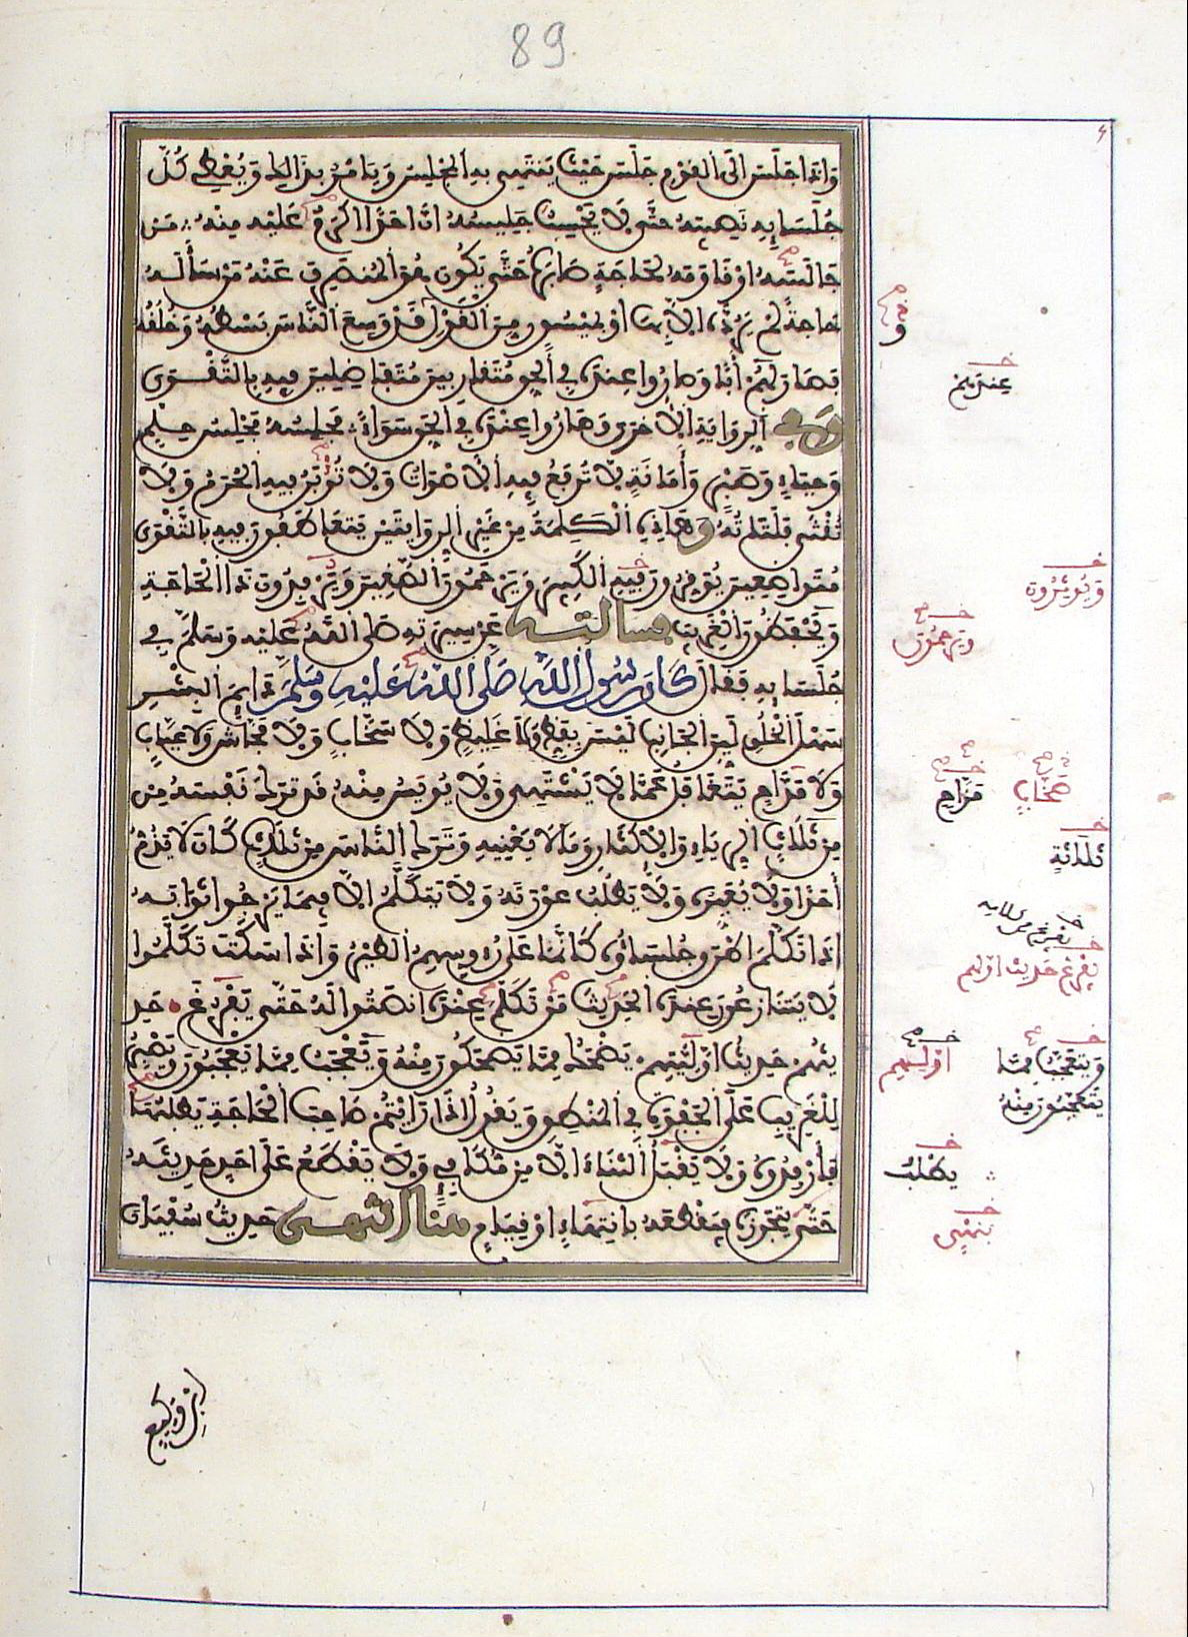 89
وَإِذَا جَلَسَ إِلَى الْقَوْمِ جَلَسَ حَيْثُ يَنْتَهِى بِهِ الْمَجْلِسُ وَيَامُرُ بِذَالِكَ وَيُعْطِى كُلَّ
جُلَسَايِهِ نَصِيبَهُ حَتَّى لَا يَحْسِبُ جَلِيسُهُ أَنَّ أَحَدًا أَكْرَمُ عَلَيْهِ مِنْهُ مَن
جَالَسَهُ أَوْ قَاوَمَهُ لِحَاجَةٍ صَابَرَهُ حَتَّى يَكُونَ هُوَ الْمُنْصَرِفَ عَنْهُ مَنْ سَأَلَهُ
حَاجَةً لَمْ يَرُدَّهُ إِلَّا بِهَا أَوْ بِمَيْسُورٍ مِنَ الْقَوْلِ قَدْ وَسِعَ النَّاسَ بَسْطُهُ وَخُلُقُهُ
فَصَارَ لَهُمْ أَبًا وَصَارُوا عِنْدَهُ فِي الْحَقِّ مُتَقَارِبِينَ مُتَفَاضِلِينَ فِيهِ بِالتَّقْوَى
وَفِي الرِّوَايَةِ الْأُخْرَى وَصَارُوا عِنْدَهُ فِي الْحَقِّ سَوَاءً مَجْلِسُهُ مَجْلِسُ حِلْمٍ
وَحَيَاءٍ وَصَبْرٍ وَأَمَانَةٍ لَا تُرْفَعُ فِيهِ الْأَصْوَاتُ وَلَا تُؤْبَنُ فِيهِ الْحُرَمُ وَلَا
تُنْثَى فَلَتَاتُهُ وَهَاذِهِ الْكَلِمَةُ مِنْ غَيْرِ الرِّوَايَتَيْنِ يَتَعَاطَفُونَ فِيهِ بِالتَّقْوَى
مُتَوَاضِعِينَ يُوَقِّرُونَ فِيهِ الْكَبِيرَ وَيَرْحَمُونَ الصَّغِيرَ وَيَرْفِدُونَ ذَا الْحَاجَةِ
وَيَحْفَظُونَ الْغَرِيبَ فَسَأَلْتُهُ عَنْ سِيرَتِهِ صَلَّى اللَّهُ عَلَيْهِ وَسَلَّمَ فِي
جُلَسَايِهِ فَقَالَ كَانَ رَسُولُ اللَّهِ صَلَّى اللَّهُ عَلَيْهِ وَسَلَّمَ دَايِمَ الْبِشْرِ
سَهْلَ الْخُلُقِ لَيِّنَ الْجَانِبِ لَيْسَ بِفَظٍّ وَلَا غَلِيظٍ وَلَا سَخَّابٍ وَلَا فَحَّاشٍ وَلَا عَيَّابٍ
وَلَا مَدَّاحٍ يَتَغَافَلُ عَمَّا لَا يَشْتَهِى وَلَا يُويَسُ مِنْهُ قَدْ تَرَكَ نَفْسَهُ مِن
مِنْ ثَلَاثٍ الرِّيَاءِ وَالْإِكْثَارِ وَمَا لَا يَعْنِيهِ وَتَرَكَ النَّاسَ مِنْ ثَلَاثٍ كَانَ لَا يَذُمُّ
أَحَدًا وَلَا يُعَيِّرُهُ وَلَا يَطْلُبُ عَوْرَتَهُ وَلَا يَتَكَلَّمُ إِلَّا فِيمَا يَرْجُوا ثَوَابَهُ
إِذَا تَكَلَّمَ أَطْرَقَ جُلَسَاؤُهُ كَأَنَّمَا عَلَى رُءُوسِهِمُ الطَّيْرُ وَإِذَا سَكَتَ تَكَلَّمُوا
لَا يَتَنَازَعُونَ عِنْدَهُ الْحَدِيثَ مَنْ تَكَلَّمَ عِنْدَهُ أَنْصَتُوا لَهُ حَتَّى يَفْرُغَ حَدِ
يثُهُمْ حَدِيثُ أَوَّلِيَّتِهِمْ يَضْحَكُ مِمَّا يَضْحَكُونَ مِنْهُ وَيَعْجَبُ مِمَّا يَعْجَبُونَ وَيَصْبِرُ
لِلْغَرِيبِ عَلَى الْجَفْوَةِ فِي الْمَنْطِقِ وَيَقُولُ إِذَا رَأَيْتُمْ صَاحِبَ الْحَاجَةِ يَطْلُبُهَا
فَأَرْفِدُوهُ وَلَا يَقْبَلُ الثَّنَاءَ إِلَّا مِنْ مُكَافِىءٍ وَلَا يَقْطَعُ عَلَى أَحَدٍ حَدِيثَهُ
حَتَّى يَتَجَوَّزَهُ فَيَقْطَعَهُ بِانْتِهَاءٍ أَوْ قِيَامٍ هُنَا انْتَهَى حَدِيثُ سُفْيَانَ
عِنْدَهُمْ
وَيُوثِرُونَ
وَيَرْحَمُونَ
صَخَّابٍ
مَزَّاحٍ
ثَلَاثَةٍ
يَفْرُغَ حَدِيثُ أَوَّلِهِم
وَيَتَعَجَّبُ مِمَّا
يَتَعَجَّبُونَ مِنْهُ
أَوَّلِهِمْ
يَطْلُبُ
بِنَهْيٍ
ابْنِ وَكِيعٍ